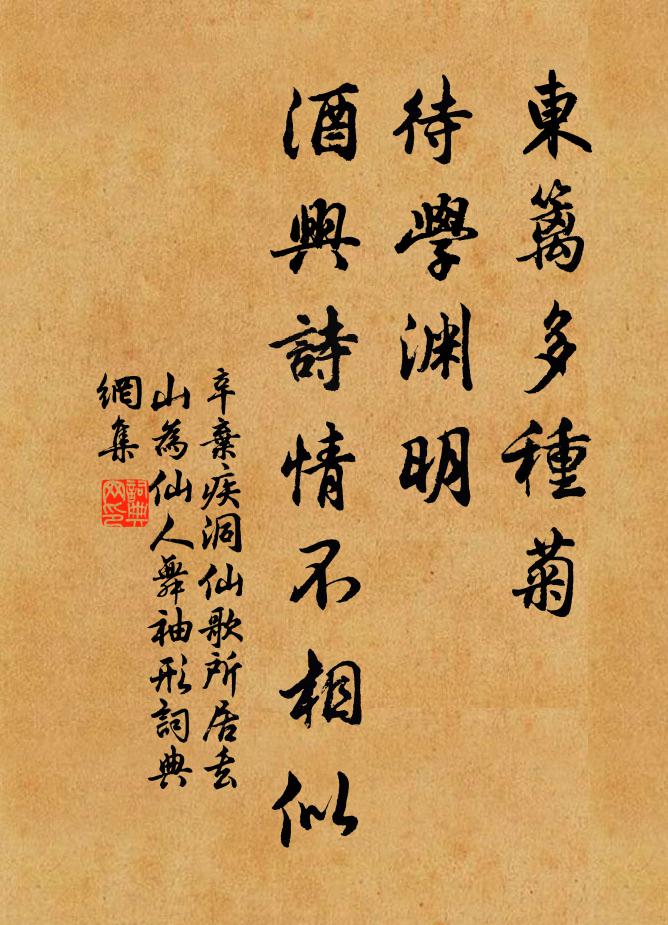 東籬多種菊
待學渊明
酒興詩情不相似
辛棄疾洞仙歌所居丟
山為仙人舞袖形詞典
網集
詞典
網印